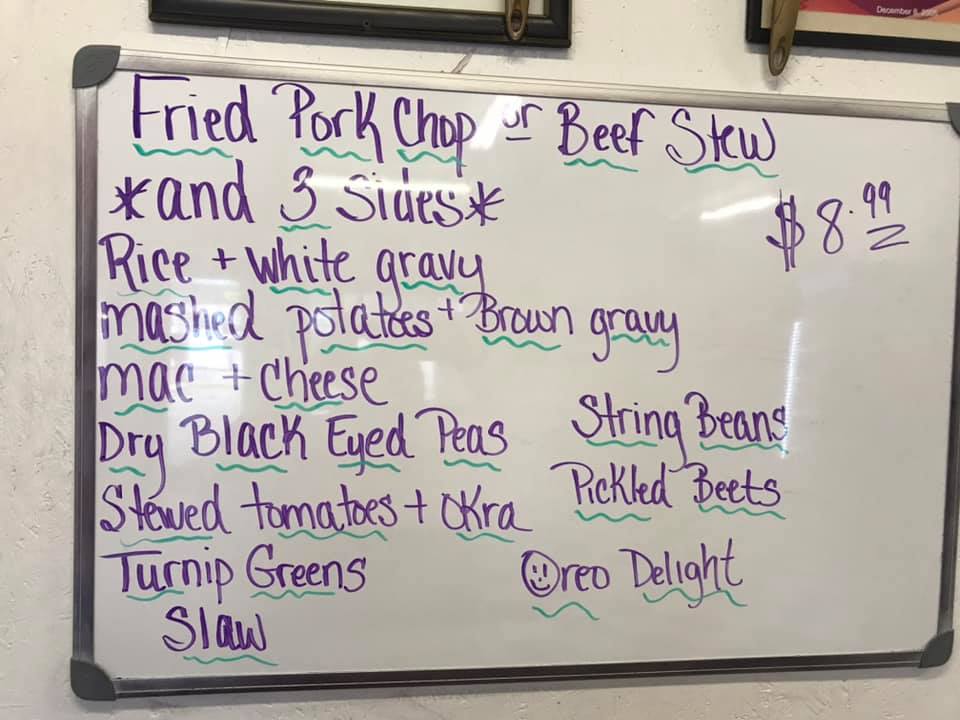 December 8, 2001
Fried Pork Chop or Beef Stew
*and 3 Sides*
$8.99
Rice + white gravy
mashed potatoes + Brown gravy
mac + cheese
Dry Black Eyed Peas
Stewed tomatoes + Okra
Turnip Greens
Slaw
String Beans
Pickled Beets
Oreo Delight